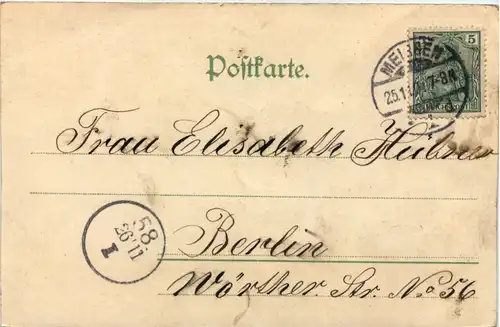 Postkarte.
5
MEISSEN
7-8N
Frau Elisabeth Hübner
58.
26/11
I
Berlin
Wörther. Str. No 56